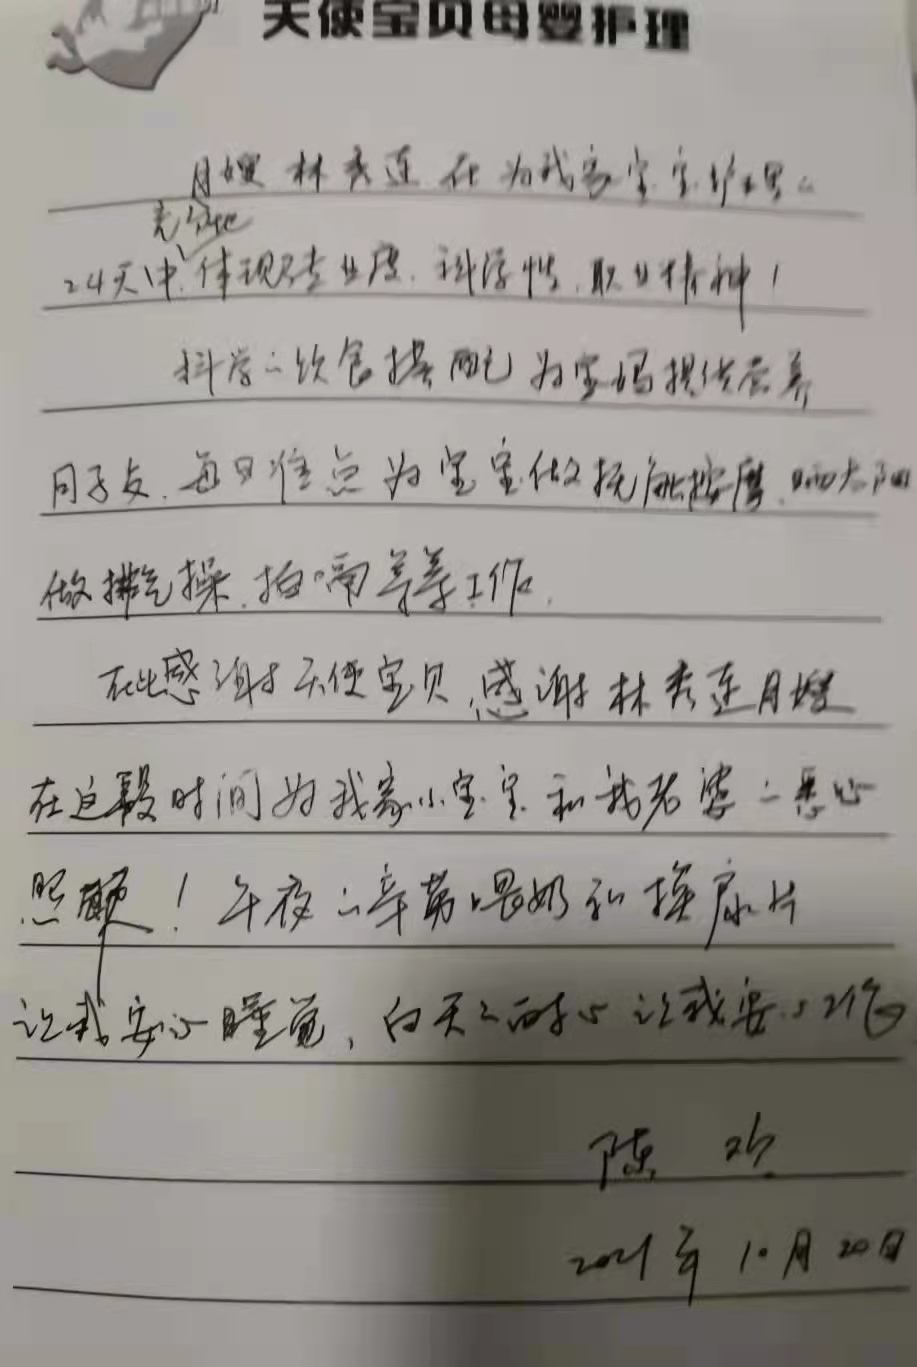 天使宝贝母婴护理
月嫂林秀连在为我家宝宝护理的
充分地
24天中,体现了专业度、科学性、职业精神!
科学的饮食搭配为宝妈提供营养
月子餐、每日准点为宝宝做抚触按摩、晒太阳
做排气操、拍嗝等等工作、
在此感谢天使宝贝、感谢林秀连月嫂
在这段时间为我家小宝宝和我老婆的悉心
照顾!午夜的辛劳喂奶和换尿片
让我安心睡觉,白天的耐心让我安心工作
陈
2021年10月20日